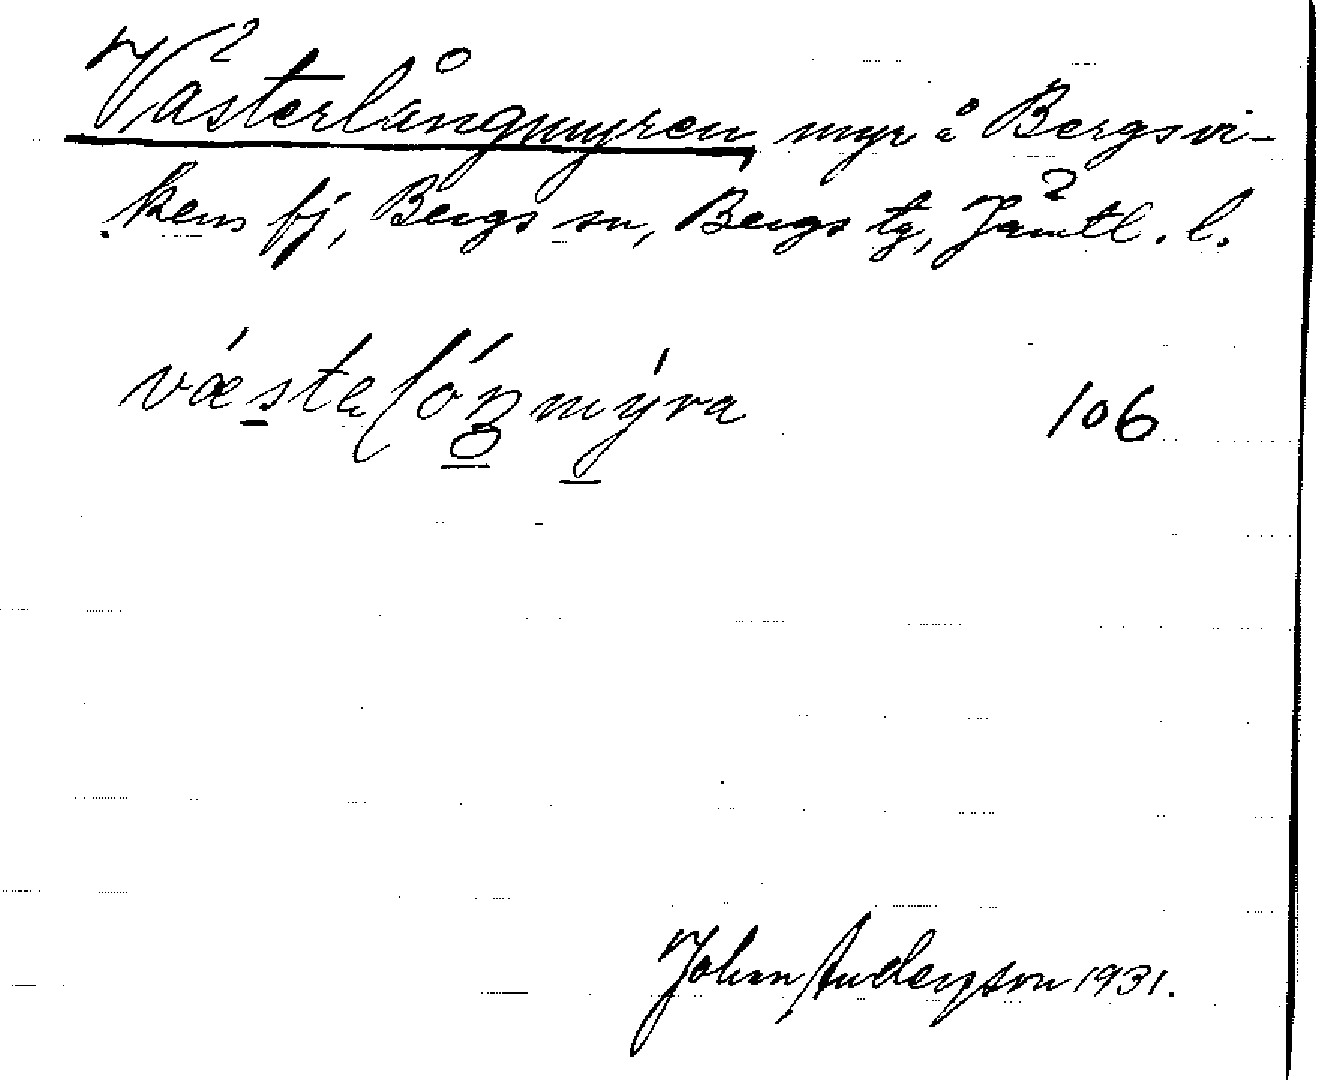 Västerlångmyren, myr å Bergsvi-
kens fj, Bergs sn, Bergs tg, Jämtl. l.
106
John Anderson 1931.